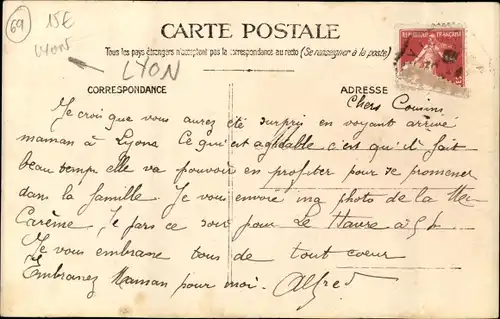 69
15€
LYON
CARTE POSTALE
Tous les pays étrangers n'acceptent pas la correspondance au recto (Se renseigner à la poste)
LYON
CORRESPONDANCE
ADRESSE
REPUBLIQUE FRANÇAISE
Chers Cousins
Je crois que vous aurez été surpris en voyant arrivé
maman à Lyons Ce qui est agréable c'est qu'il fait
beau temps elle va pouvoir en profiter pour se promener
dans la famille. Je vous envoie ma photo de la Mi-
Carème, Je pars ce soir pour Le Havre a 5 h
Je vous embrasse tous de tout coeur
Embrassez Maman pour moi. Alfred